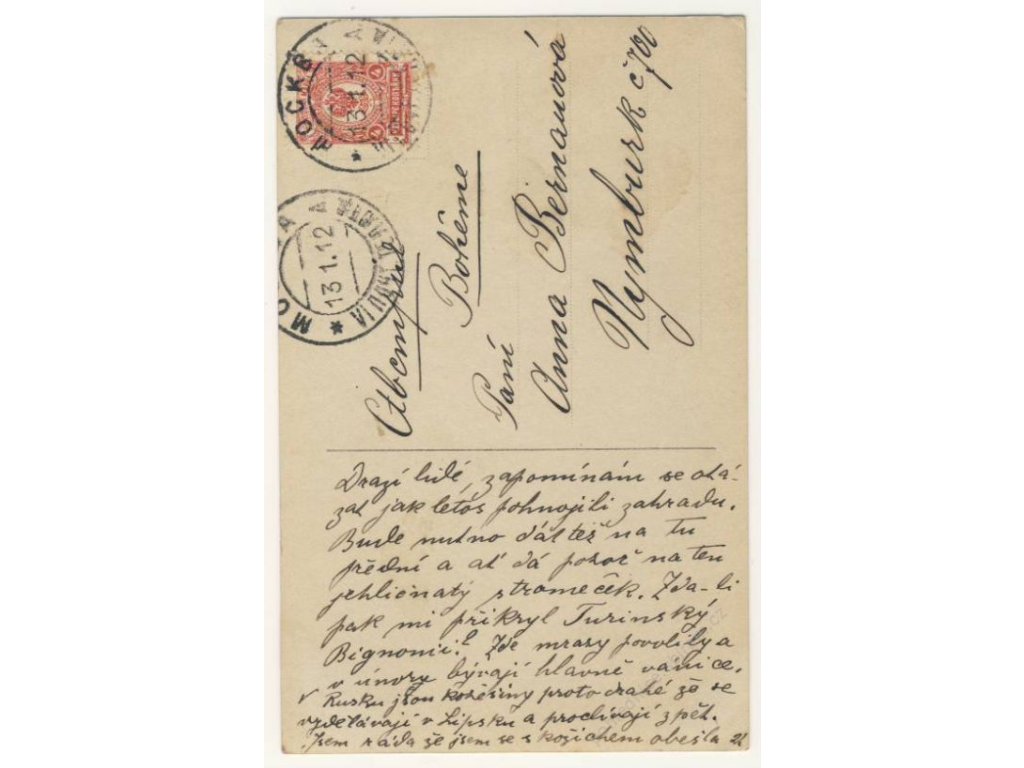 МОСКВА
13.1.12
МОСКВА
13.1.12
Bohême
Paní
Anna Bernauová
Nymburk č 700
Drazí lidé, zapomínám se otá-
zat jak letos pohnojili zahradu.
Bude nutno dát též na tu
přední a ať dá pozoř na ten
jehličnatý stromeček. Zda-li
pak mi přikryl Turinský
Bignonii? Zde mrazy povolily a
v únoru bývají hlavně vánice.
V Rusku jsou kožešiny proto drahé že se
vzdělávají v Lipsku a prodívají zpět.
Jsem ráda že jsem se s kožichem obešla